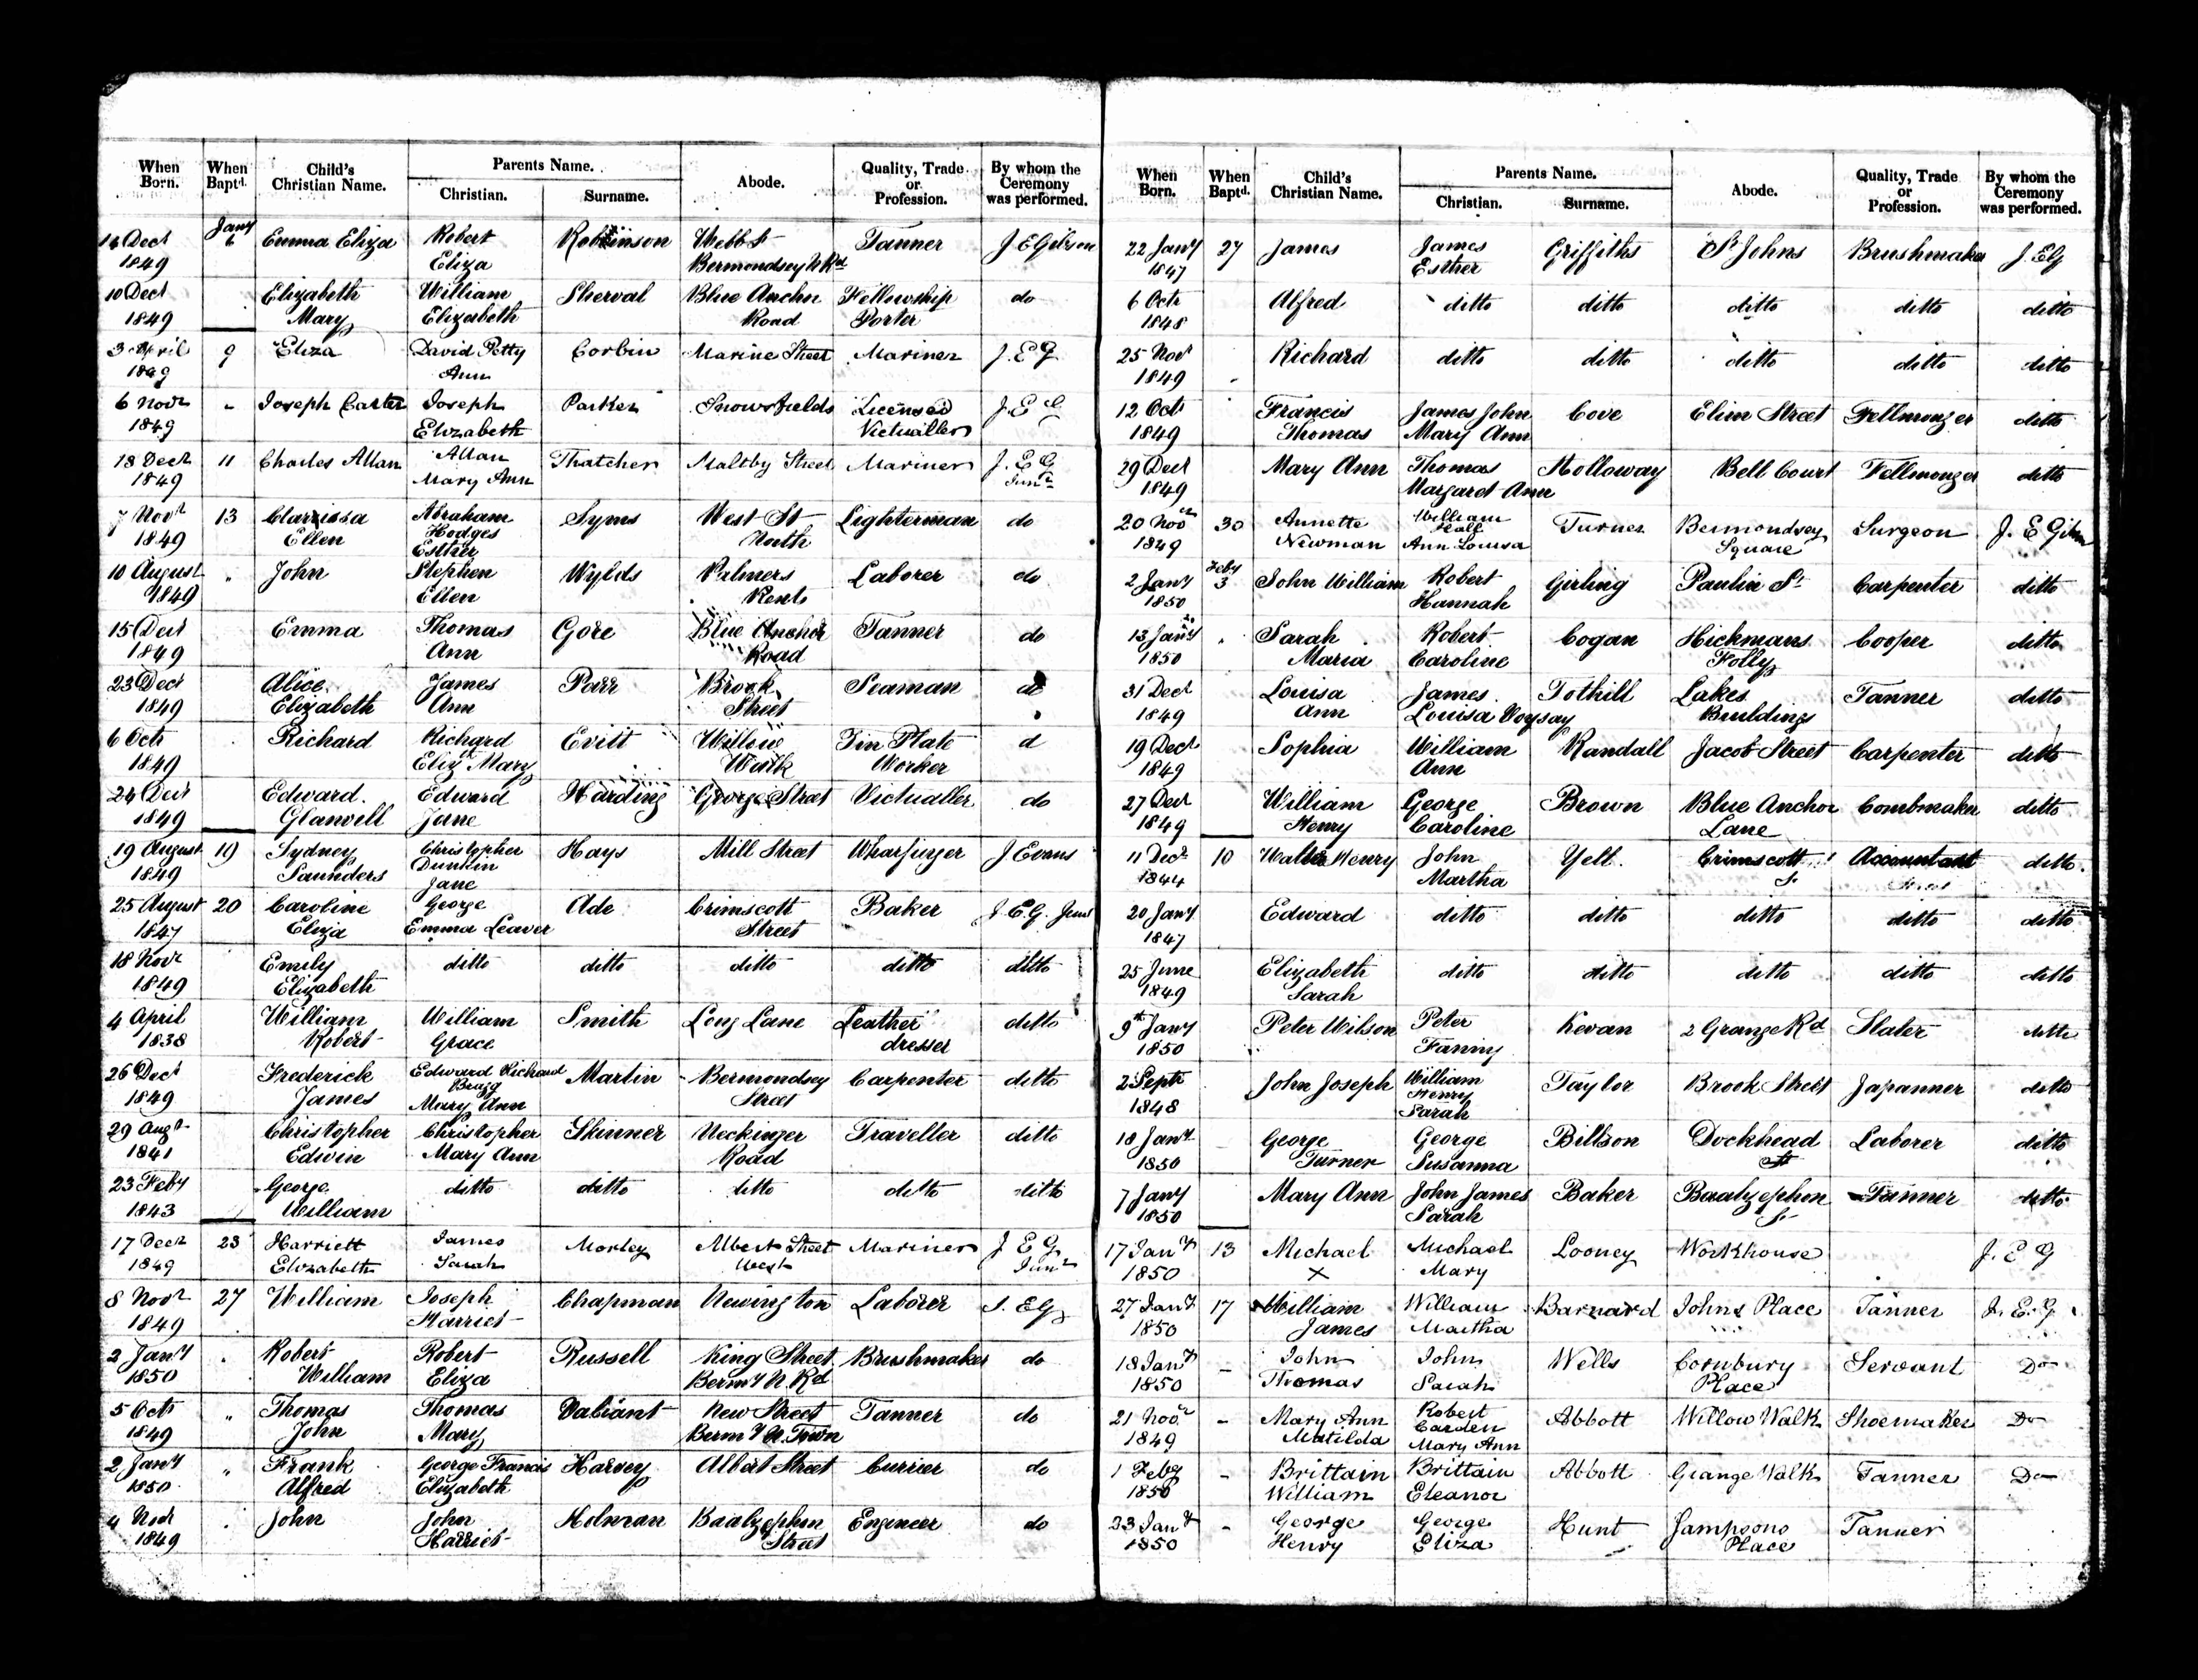 When Born. When Baptd. Child's Christian Name. Parents Name. Christian. Surname. Abode. Quality, Trade or Profession. By whom the Ceremony was performed.
14 Decr Jany 6 Emma Eliza Robert Robinson Webb St Tanner J E Gibson
1849 Eliza Bermondsey N Rd
10 Decr Elizabeth William Sherval Blue Anchr Fellowship do
1849 Mary Elizabeth Road Porter
3 April 9 Eliza David Petty Corbin Marine Street Mariner J. E G
1849 Ann
6 Novr " Joseph Carter Joseph Parker Snowsfields Licensed J. E G
1849 Elizabeth Victualler
18 Decr 11 Charles Allan Allan Thatcher Maltby Street Mariner J. E G
1849 Mary Ann Junr
7 Novr 13 Clarissa Abraham Syms West St Lighterman do
1849 Ellen Hodges North
Esther
10 August " John Stephen Wylds Palmers Laborer do
1849 Ellen Rents
15 Decr Emma Thomas Gore Blue Anchor Tanner do
1849 Ann Road
23 Decr Alice James Parr Brook Seaman do
1849 Elizabeth Ann Street
6 Octr Richard Richard Evitt Willow Tin Plate d
1849 Eliz Mary Walk Worker
24 Decr Edward Edward Harding George Street Victualler do
1849 Glanvell Jane
19 August 19 Sydney Christopher Hays Mill Street Wharfinger J Evans
1849 Saunders Dunkin
Jane
25 August 20 Caroline George Ade Crimscott Baker J. E. G. Junr
1847 Eliza Emma Leaver Street
18 Novr Emily ditto ditto ditto ditto ditto
1849 Elizabeth
4 April William William Smith Long Lane Leather ditto
1838 Robert Grace dresser
26 Decr Frederick Edward Richard Martin Bermondsey Carpenter ditto
1849 James Bragg Street
Mary Ann
29 Augt Christopher Christopher Skinner Neckinger Traveller ditto
1841 Edwin Mary Ann Road
23 Feby George ditto ditto ditto ditto ditto
1843 William
17 Decr 23 Harriett James Morley Albert Street Mariner J E G
1849 Elizabeth Sarah West Junr
8 Novr 27 William Joseph Chapman Newington Laborer J. E G
1849 Harriet
2 Jany " Robert Robert Russell King Street Brushmaker do
1850 William Eliza Bermy N. Rd
5 Octr " Thomas Thomas Valiant New Street Tanner do
1849 John Mary Bermy N. Town
2 Jany " Frank George Francis Harvey Albert Street Currier do
1850 Alfred Elizabeth
4 Novr " John John Holman Baalzephon Engineer do
1849 Harriet Street
When Born. When Baptd. Child's Christian Name. Parents Name. Christian. Surname. Abode. Quality, Trade or Profession. By whom the Ceremony was performed.
22 Jany 27 James James Griffiths St Johns Brushmaker J. E G
1847 Esther
6 Octr Alfred ditto ditto ditto ditto ditto
1848
25 Novr Richard ditto ditto ditto ditto ditto
1849
12 Octr Francis James John Cove Elim Street Fellmonger ditto
1849 Thomas Mary Ann
29 Decr Mary Ann Thomas Holloway Bell Court Fellmonger ditto
1849 Margaret Ann
20 Novr 30 Annette William Turner Bermondsey Surgeon J. E Gibson
1849 Newman Hall Square
Ann Louisa
2 Jany Feby 3 John William Robert Girling Paulin St Carpenter ditto
1850 Hannah
13 Jany " Sarah Robert Cogan Hickmans Cooper ditto
1850 Maria Caroline Folly
31 Decr Louisa James Tothill Lakes Tanner ditto
1849 Ann Louisa Voysay Buildings
19 Decr Sophia William Randall Jacob Street Carpenter ditto
1849 Ann
27 Decr William George Brown Blue Anchor Combmaker ditto
1849 Henry Caroline Lane
11 Decr 10 Walter Henry John Yell Crimscott Accountant ditto
1844 Martha St
20 Jany Edward ditto ditto ditto ditto ditto
1847
25 June Elizabeth ditto ditto ditto ditto ditto
1849 Sarah
9th Jany Peter Wilson Peter Kevan 2 Grange Rd Slater ditto
1850 Fanny
2 Septr John Joseph William Taylor Brook Street Japanner ditto
1848 Henry
Sarah
18 Jany George George Billson Dockhead Laborer ditto
1850 Turner Susanna
7 Jany Mary Ann John James Baker Baalzephon Tanner ditto
1850 Sarah St
17 Jany 13 Michael Michael Looney Workhouse J. E G
1850 x Mary
27 Jany 17 William William Barnard Johns Place Tanner J. E. G
1850 James Martha
18 Jany - John John Wells Cornbury Servant Do
1850 Thomas Sarah Place
21 Novr - Mary Ann Robert Abbott Willow Walk Shoemaker Do
1849 Matilda Carden
Mary Ann
1 Feby - Brittain Brittain Abbott Grange Walk Tanner Do
1850 William Eleanor
23 Jany - George George Hunt Sampsons Tanner
1850 Henry Eliza Place